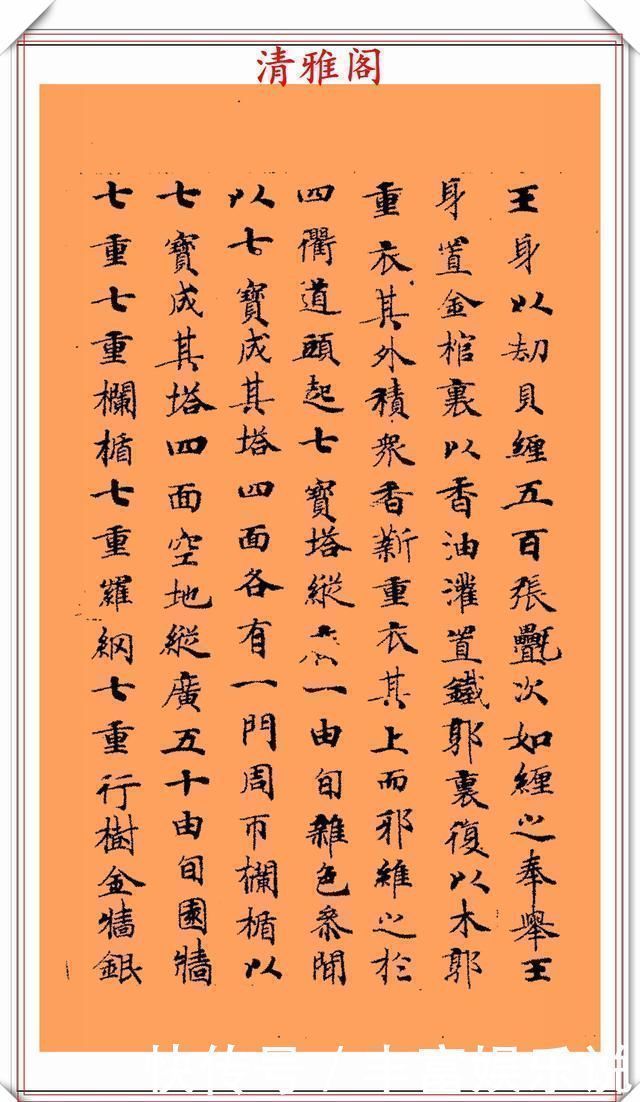 清雅阁
王身以劫貝纏五百張氎次如纏之奉舉王
身置金棺裏以香油灌置鐵郭裏復以木郭
重衣其外積衆香薪重衣其上而邪維之於
四衢道頭起七寶塔縱一由旬雜色參間
以七寶成其塔四面各有一門周帀欄楯以
七寶成其塔四面空地縱廣五十由旬園牆
七重七重欄楯七重羅網七重行樹金牆銀
快传号/